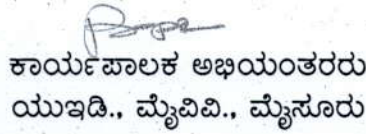 ಕಾರ್ಯಪಾಲಕ ಅಭಿಯಂತರರು
ಯುಇಡಿ., ಮೈವಿವಿ., ಮೈಸೂರು